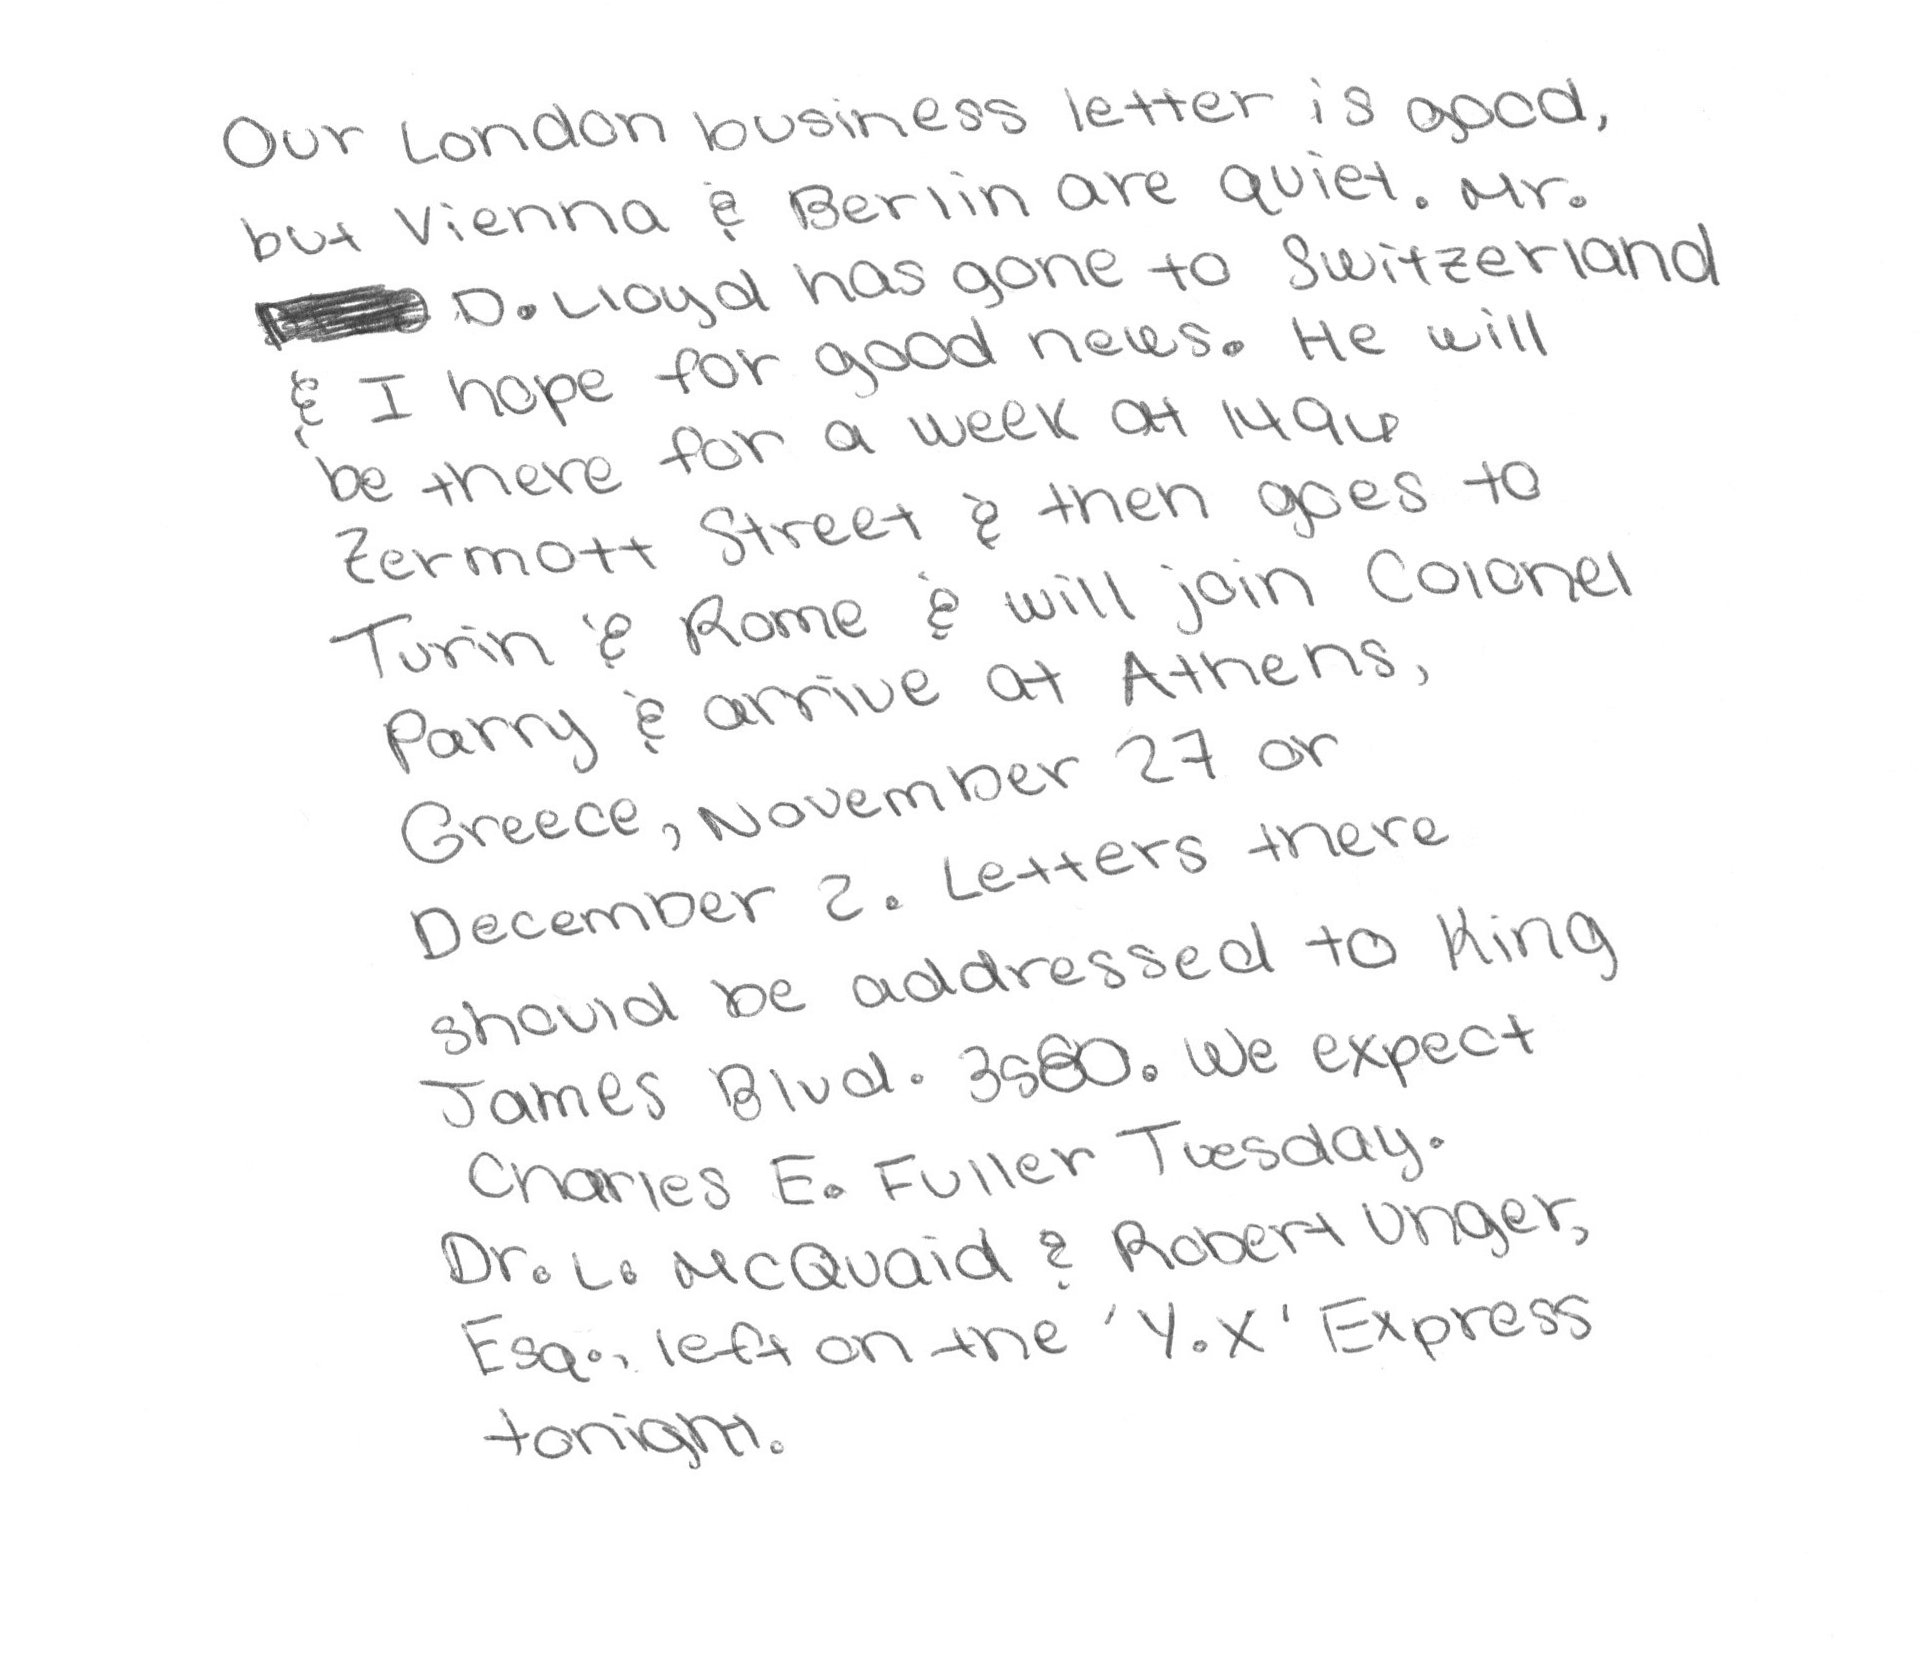 Our London business letter is good,
but Vienna & Berlin are quiet. Mr.
D. Lloyd has gone to Switzerland
& I hope for good news. He will
be there for a week at 1496
Zermott Street & then goes to
Turin & Rome & will join Colonel
Parry & arrive at Athens,
Greece, November 27 or
December 2. Letters there
should be addressed to King
James Blvd. 3580. We expect
Charles E. Fuller Tuesday.
Dr. L. McQuaid & Robert Unger,
Esq., left on the 'Y.X' Express
tonight.